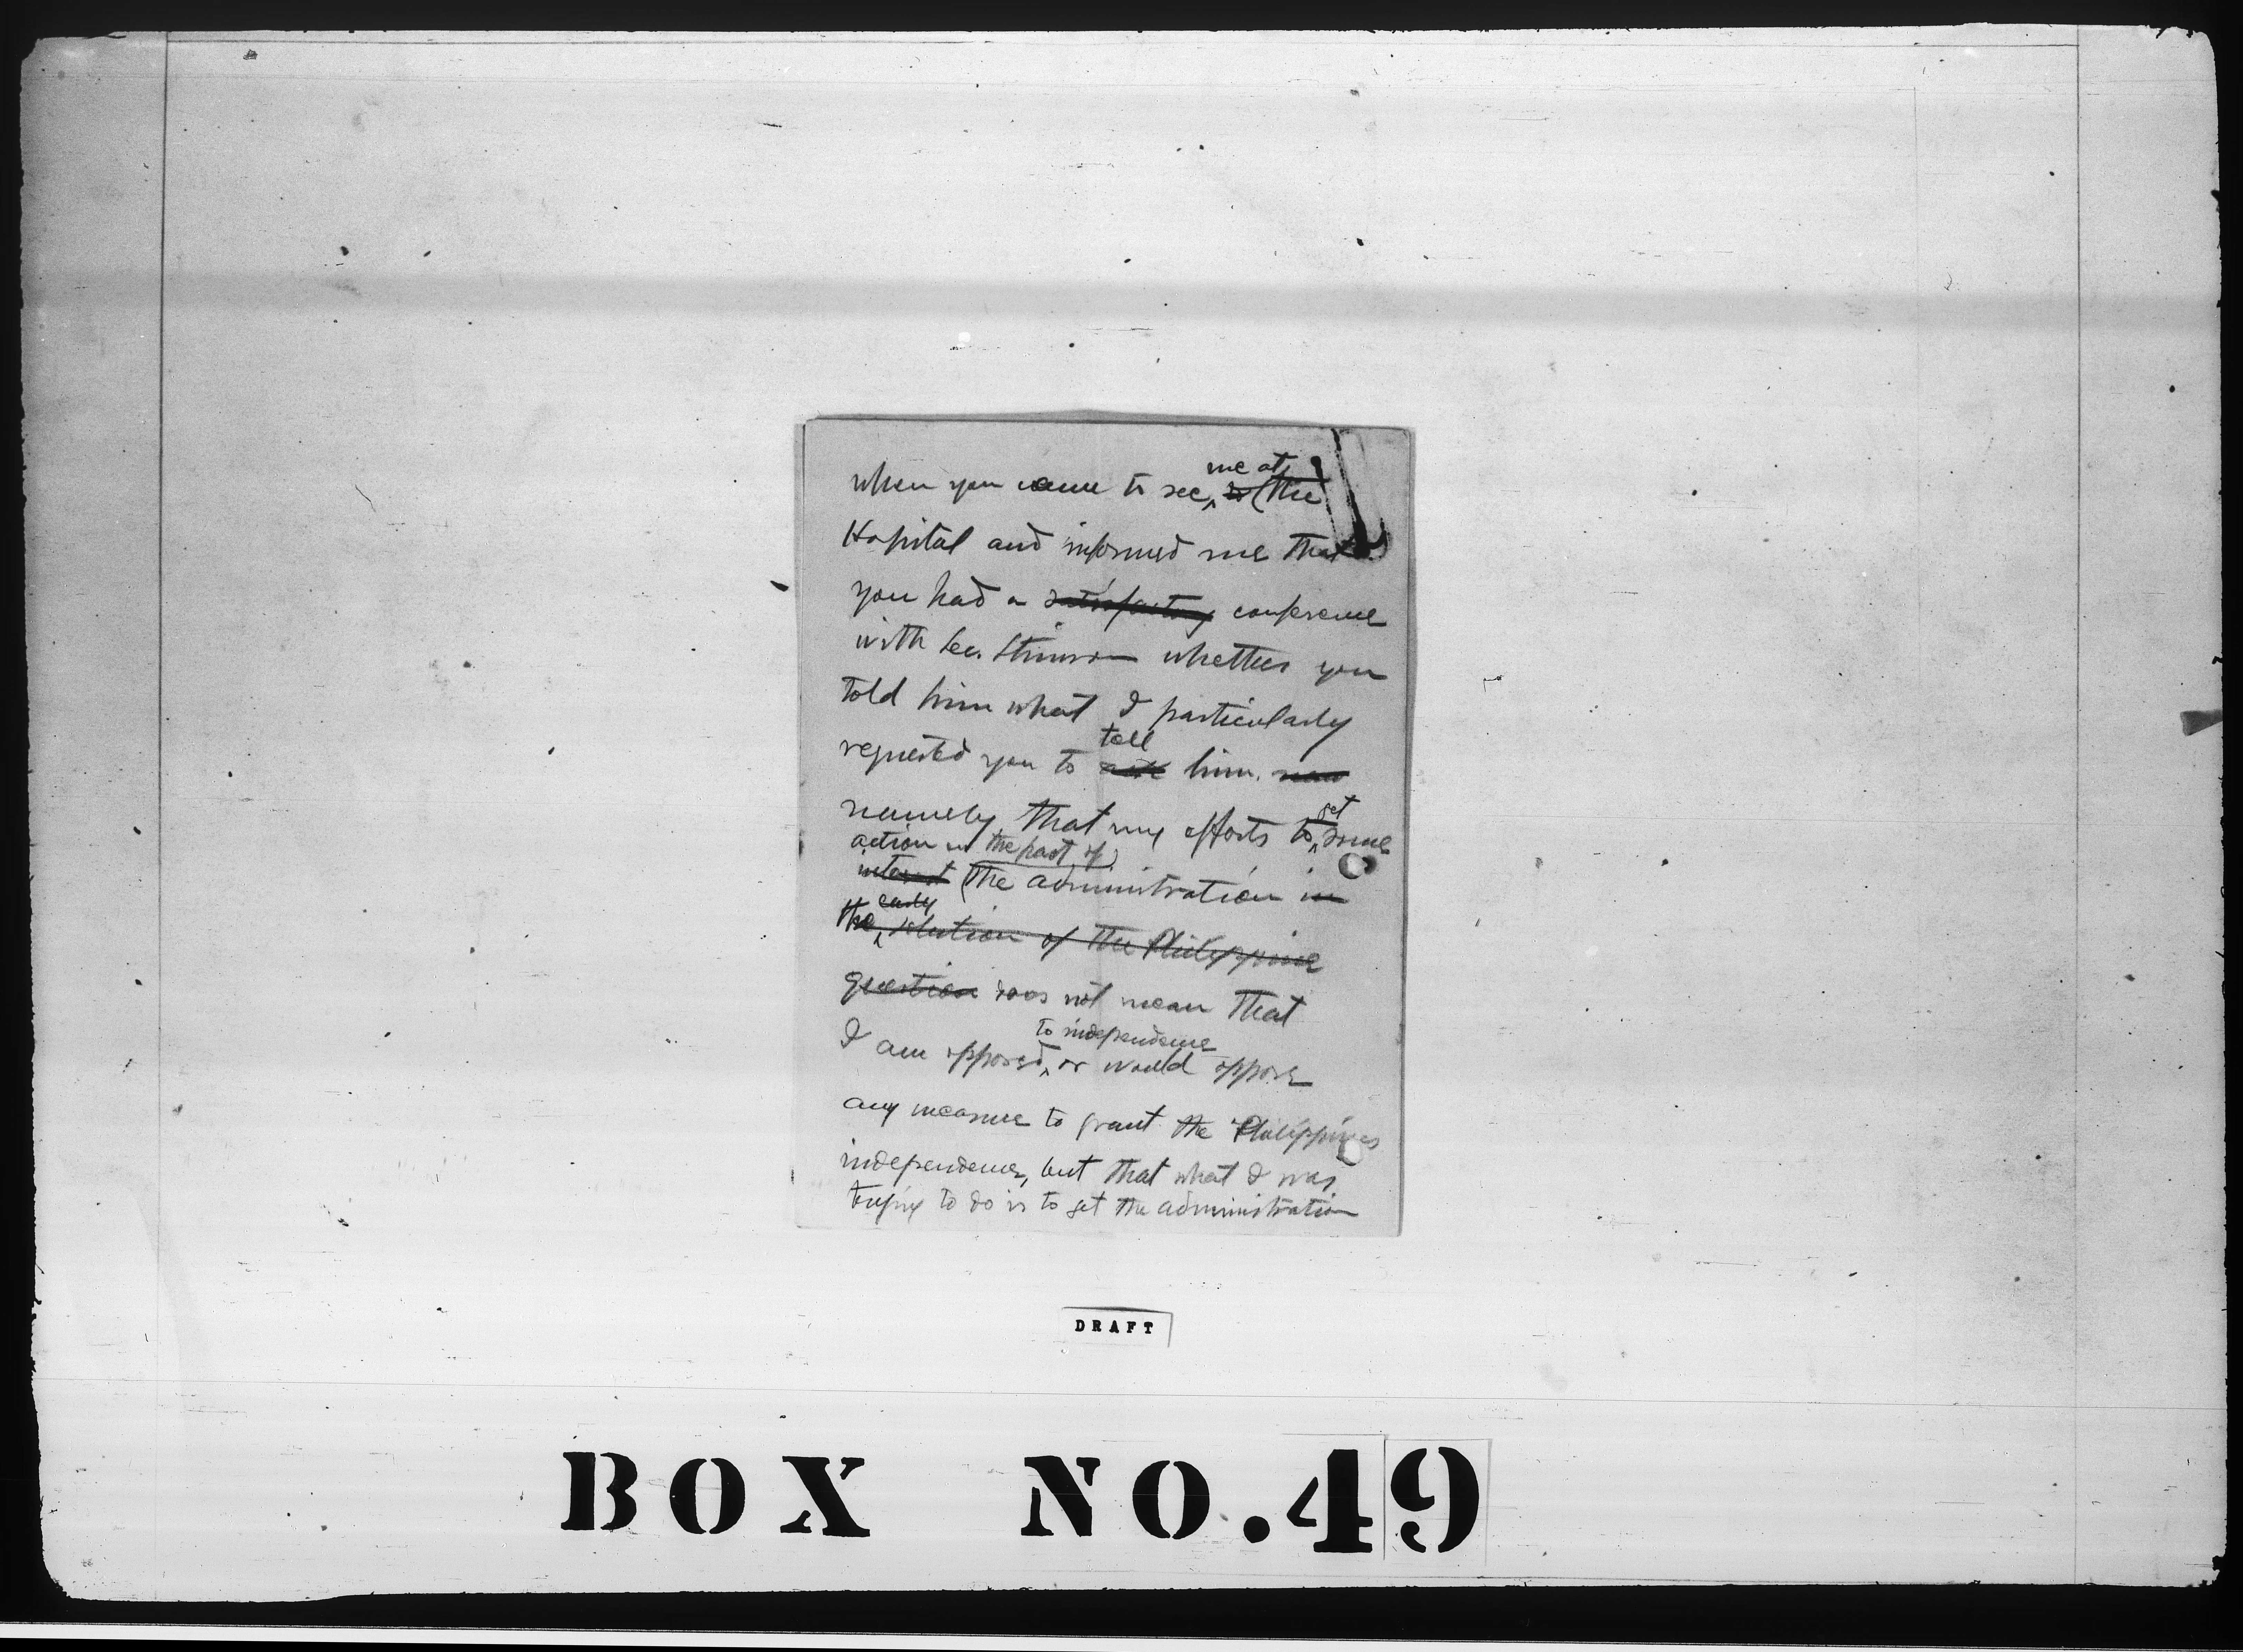 when you came to see me at the
Hospital and informed me that
you had a satisfactory conference
with Sec. Stimson whether you
told him what I particularly
requested you to tell him.
namely that my efforts to get some
action on the part of
interest the administration in
the early solution of the Philippine
question does not mean that
I am opposed to independence or would oppose
any measure to grant the Philippines
independence, but that what I was
trying to do is to get the administration
DRAFT
BOX NO. 49